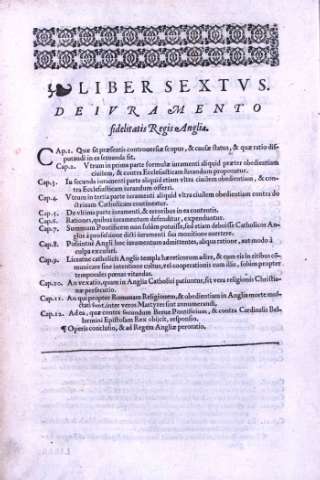 LIBER SEXTVS.
DE IVRAMENTO
fidelitatis Regis Angliæ.
Cap.1. Quæ sit præsentis controuersiæ scopus, & causæ status, & quæ ratio dis-
putandi in ea seruanda sit.
Cap.2. Vtrum in prima parte formulæ iuramenti aliquid præter obedientiam
ciuilem, & contra Ecclesiasticam iurandum proponatur.
Cap.3. In secunda iuramenti parte aliquid etiam vltra ciuilem obedientiam, & con-
tra Ecclesiasticam iurandum offerri.
Cap.4. Vtrum in tertia parte iuramenti aliquid vltra ciuilem obedientiam contra do-
ctrinam Catholicam contineatur.
Cap.5. De vltima parte iuramenti, & erroribus in ea contentis.
Cap.6. Rationes, quibus iuramentum defenditur, expenduntur.
Cap.7. Summum Pontificem non solùm potuisse, sed etiam debuisse Catholicos An-
glos à professione dicti iuramenti sua monitione auertere.
Cap.8. Possintne Angli hoc iuramentum admittentes, aliqua ratione, aut modo à
culpa excusari.
Cap.9. Liceatne catholicis Anglis templa hæreticorum adire, & cum eis in ritibus co-
municare sine intentione cultus, vel cooperationis cum illis, solùm propter
temporales pœnas vitandas.
Cap.10. An vexatio, quam in Anglia Catholici patiuntur, sit vera religionis Christia-
næ persecutio.
Cap.11. An qui propter Romanam Religionem, & obedientiam in Anglia morte mul-
ctati sunt inter veros Martyres sint annumerandi.
Cap.12. Ad ea, quæ contra secundum Breue Pontificium, & contra Cardinalis Bel-
larmini Epistolam Rex obijcit, responsio.
¶ Operis conclusio, & ad Regem Angliæ peroratio.